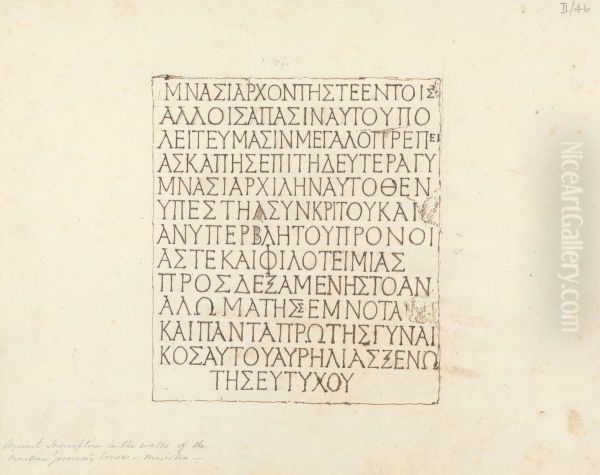 II/46
ΜΝΑΣΙΑΡΧΟΝΤΗΣΤΕΕΝΤΟΙΣ
ΑΛΛΟΙΣΑΠΑΣΙΝΑΥΤΟΥΠΟ
ΛΕΙΤΕΥΜΑΣΙΝΜΕΓΑΛΟΠΡΕΠΕΙ
ΑΣΚΑΠΗΣΕΠΙΤΗΔΕΥΤΕΡΑΓΥ
ΜΝΑΣΙΑΡΧΙΛΗΝΑΥΤΟΘΕΝ
ΥΠΕΣΤΗΑΣΥΝΚΡΙΤΟΥΚΑΙ
ΑΝΥΠΕΡΒΛΗΤΟΥΠΡΟΝΟΙ
ΑΣΤΕΚΑΙΦΙΛΟΤΕΙΜΙΑΣ
ΠΡΟΣΔΕΞΑΜΕΝΗΣΤΟΑΝ
ΑΛΩΜΑΤΗΣΣΕΜΝΟΤΑ
ΚΑΙΠΑΝΤΑΠΡΩΤΗΣΓΥΝΑΙ
ΚΟΣΑΥΤΟΥΑΥΡΗΛΙΑΣΞΕΝΩ
ΤΗΣΕΥΤΥΧΟΥ
Ancient Inscription in the walls of the
Governor's
NiceArtGallery.com